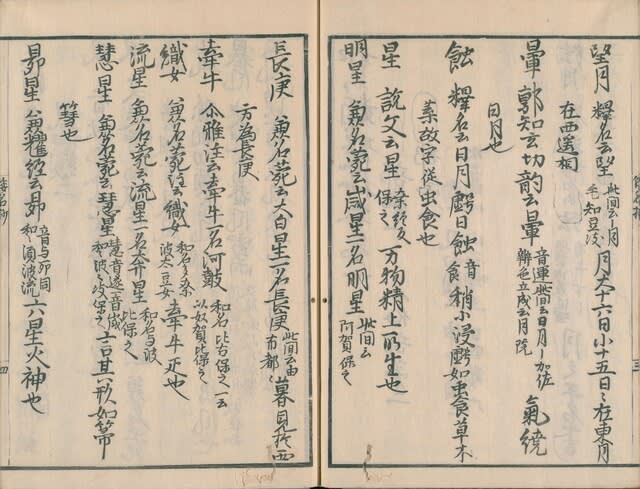 望月 釋名云望 此間云月毛知豆岐 月大十六日小十五日日在東月
在西遙相
暈 郭知玄切韵云暈 音運此間云日月加佐辨色立成云月院 氣繞
日月也
蝕 釋名云日月虧曰蝕 音食 稍小浸虧如虫食草木
葉故字從虫食也
星 說文云星 桑經反保之 万物精上所生也
明星 兼名苑云歲星一名明星 此間云阿賀保之
長庚 兼名苑云大白星一名長庚 此間云由布都々 暮見於西
方為長庚
牽牛 尒雅注云牽牛一名河鼓 和名比古保之一云以奴賀比保之
織女 兼名苑注云織女 和名多奈波太豆女 牽牛正也
流星 兼名苑云流星一名奔星 和名与波比保之
彗星 兼名苑云彗星 音遂 言其形如箒
篲也
昴星 云昴 音与卯同和名須波流 六星火神也